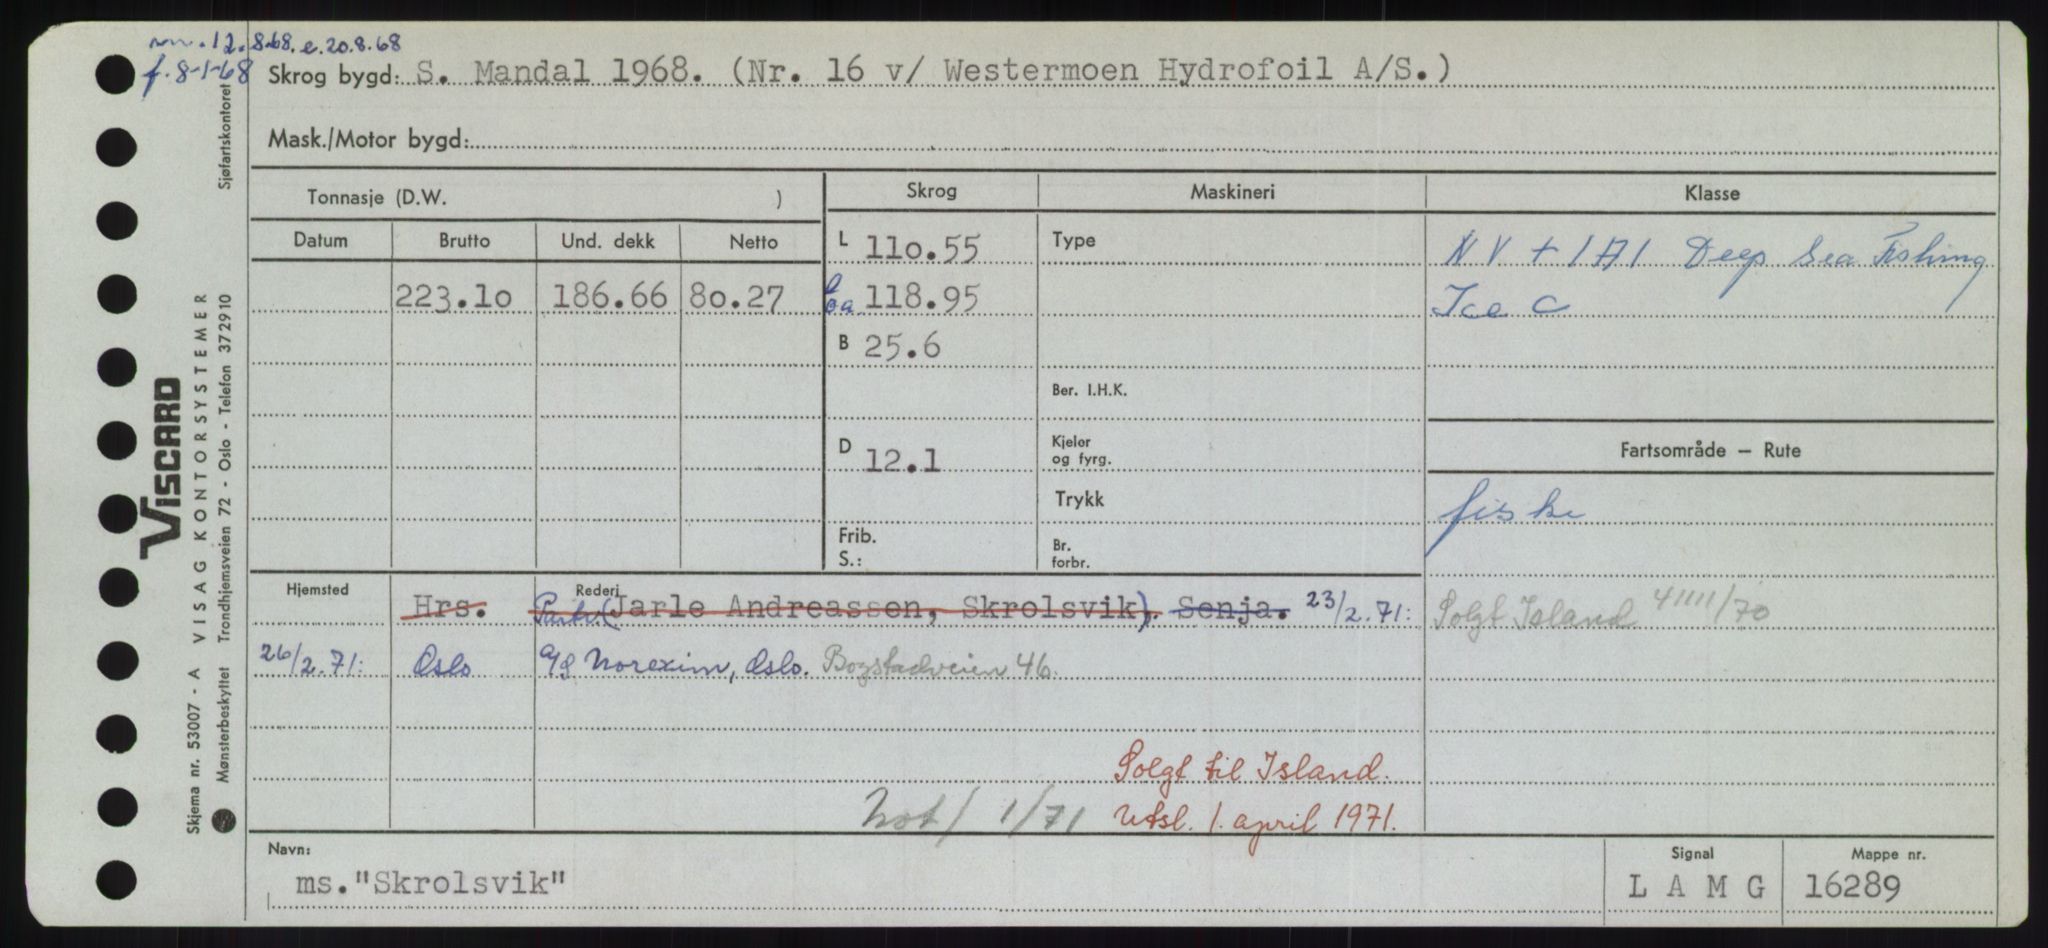 12.8.68. e. 20.8.68
f. 8-1-68
Skrog bygd: S. Mandal 1968. (Nr. 16 v/ Westermoen Hydrofoil A/S.)
Mask./Motor bygd:
Tonnasje (D.W. )
Skrog
Maskineri
Klasse
Datum Brutto Und. dekk Netto
L 110.55
Type
NV + 1A1 Deep Sea Fishing
223.10 186.66 80.27
loa 118.95
Ice C
B 25.6
Ber. I.H.K.
D 12.1
Kjeler
og fyrg.
Fartsområde — Rute
Trykk
fiske
Frib.
S.:
Br.
forbr.
Hjemsted
Rederi
Hrs. Partr. (Jarle Andreassen, Skrolsvik). Senja. 23/2.71:
Solgt Island /70
26/2.71: Oslo A/S Norexim, Oslo. Bogstadveien 46.
Solgt til Island.
Not/ 1/71 Utsl. 1. april 1971.
Navn:
ms."Skrolsvik"
Signal
L A M G
Mappe nr.
16289
Sjøfartskontoret
VISCARD
VISAG KONTORSYSTEMER
Skjema nr. 53007 - A
Mønsterbeskyttet Trondhjemsveien 72 - Oslo - Telefon 372910